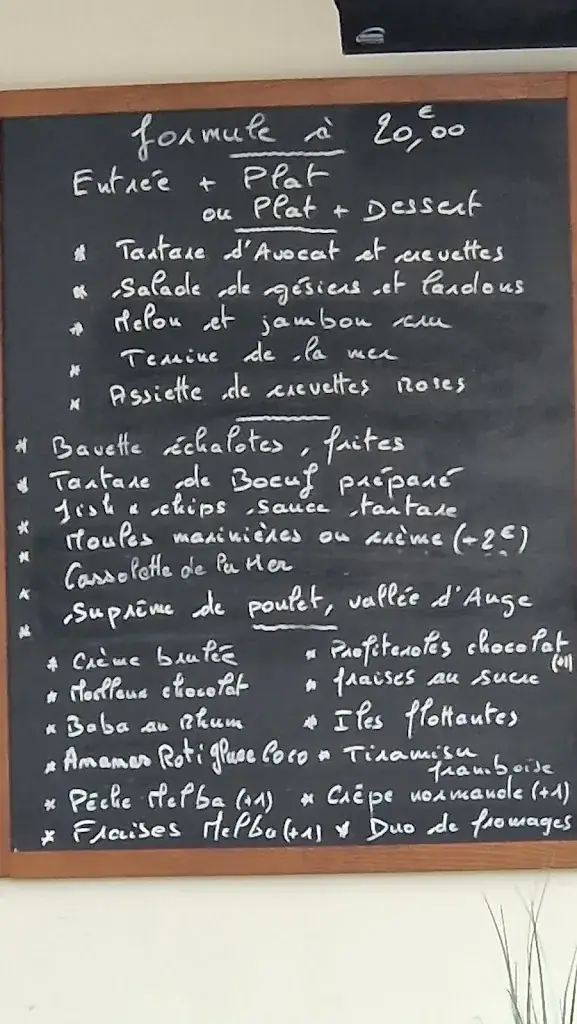 formule à 20,€00
Entrée + Plat
ou Plat + Dessert
* Tartare d'Avocat et crevettes
* Salade de gésiers et lardons
* Melon et jambon cru
* Terrine de la mer
* Assiette de crevettes Roses
* Bavette échalotes, frites
* Tartare de Boeuf préparé
* fish & chips sauce tartare
* Moules marinières ou crème (+2€)
* Cassolette de la Mer
* Suprême de poulet, vallée d'Auge
* Crème brulée * Profiteroles chocolat (+1)
* Moelleux chocolat * fraises au sucre
* Baba au Rhum * Iles flottantes
* Ananas Roti glace Coco * Tiramisu
framboise
* Pêche Melba (+1) * Crêpe normande (+1)
* Fraises Melba (+1) * Duo de fromages